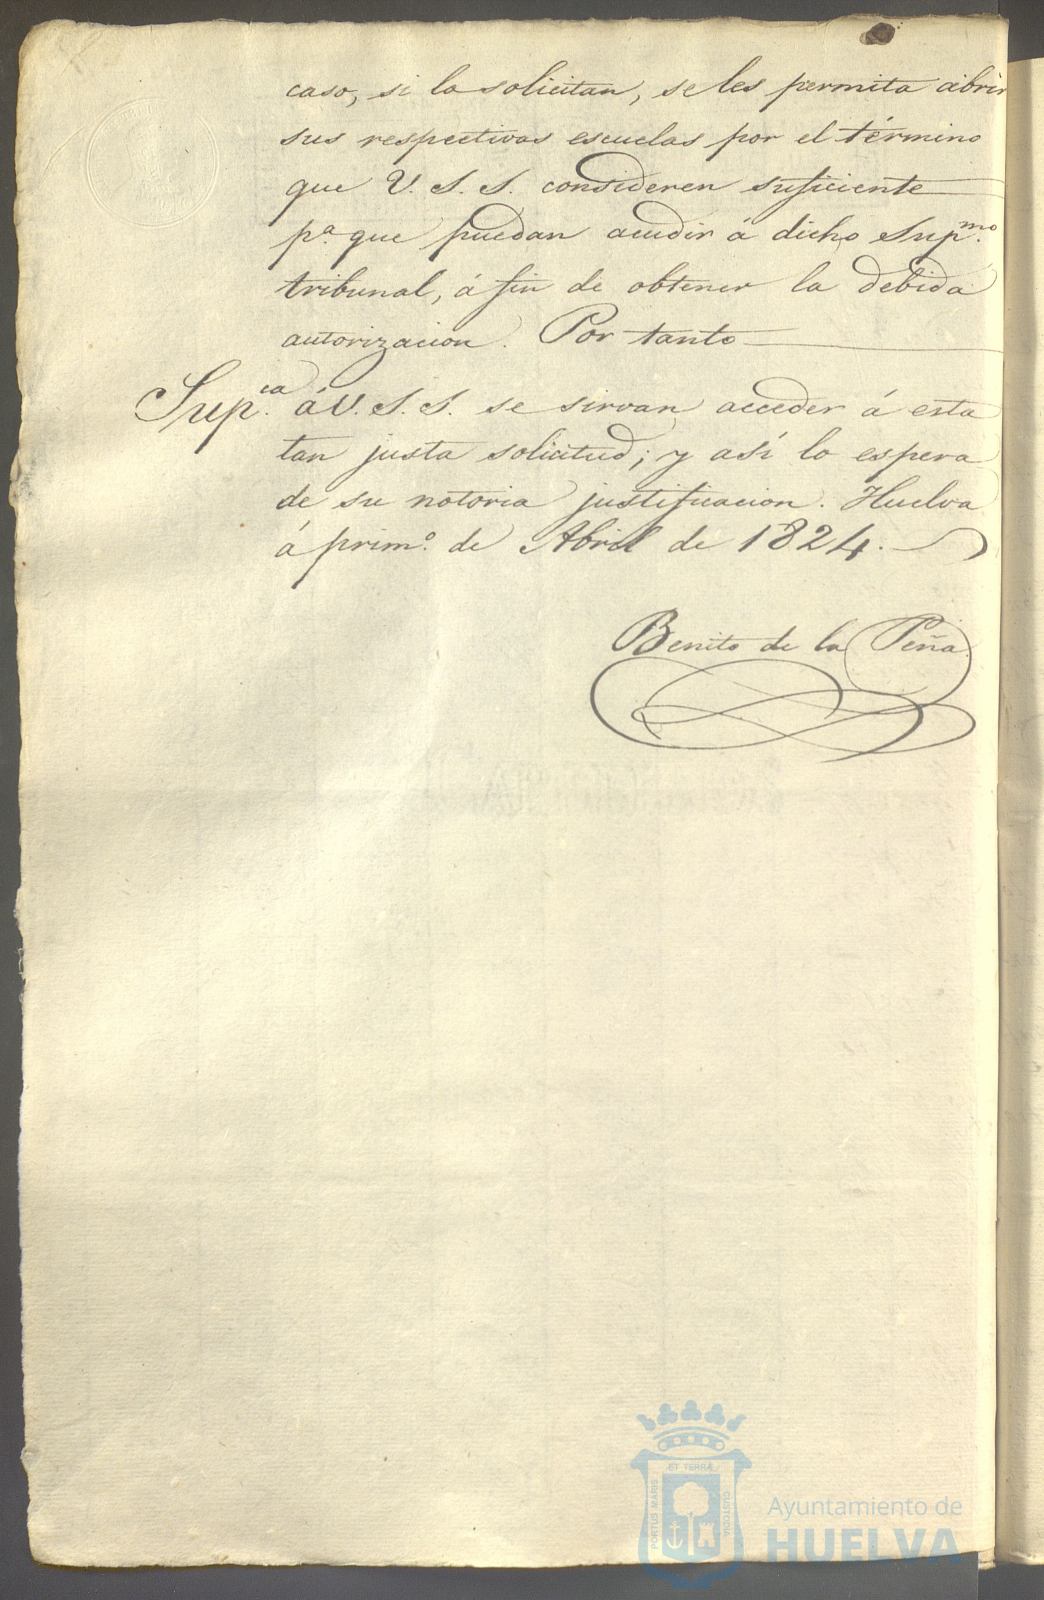 caso, si lo solicitan, se les permita abrir
sus respectivas escuelas por el término
que V. S. S. consideren suficiente
p.ª que puedan acudir á dicho Sup.mo
tribunal, á fin de obtener la debida
autorizacion. Por tanto
Sup.ca á V. S. S. se sirvan acceder á esta
tan justa solicitud; y así lo espera
de su notoria justificacion. Huelva
á prim.º de Abril de 1824.
Benito de la Peña
PORTUS MARIS
ET TERRÆ
CUSTODIA
Ayuntamiento de
HUELVA